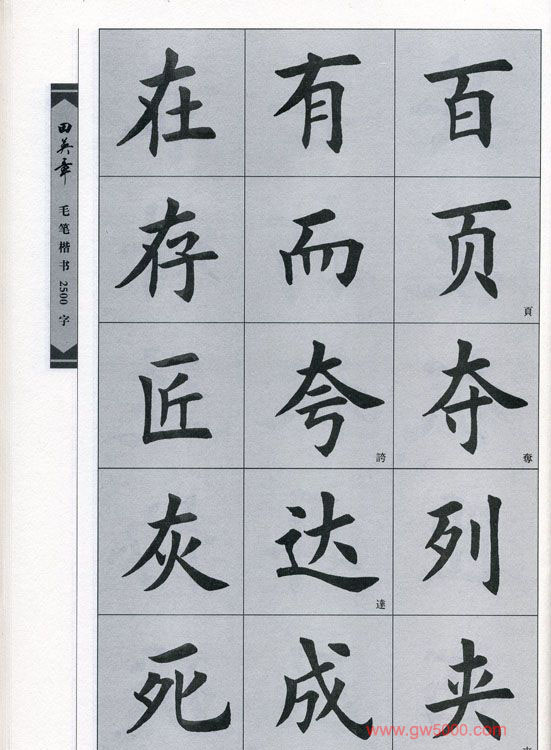 田英章
毛笔楷书 2500 字
在 有 百
存 而 页 頁
匠 夸 誇 夺 奪
灰 达 達 列
死 成 夹
www.gw5000.com